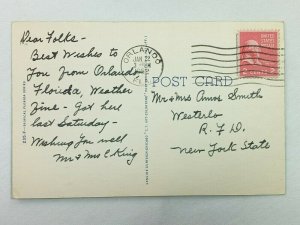 Dear Folks -
Best Wishes to
You from Orlando
Florida, Weather
Fine - Got here
last Saturday -
Wishing You well
Mr & Mrs C King
ORLANDO
JAN 22
POST CARD
UNITED STATES
Mr & Mrs Amos Smith
Westerlo
R.F.D.
New York State